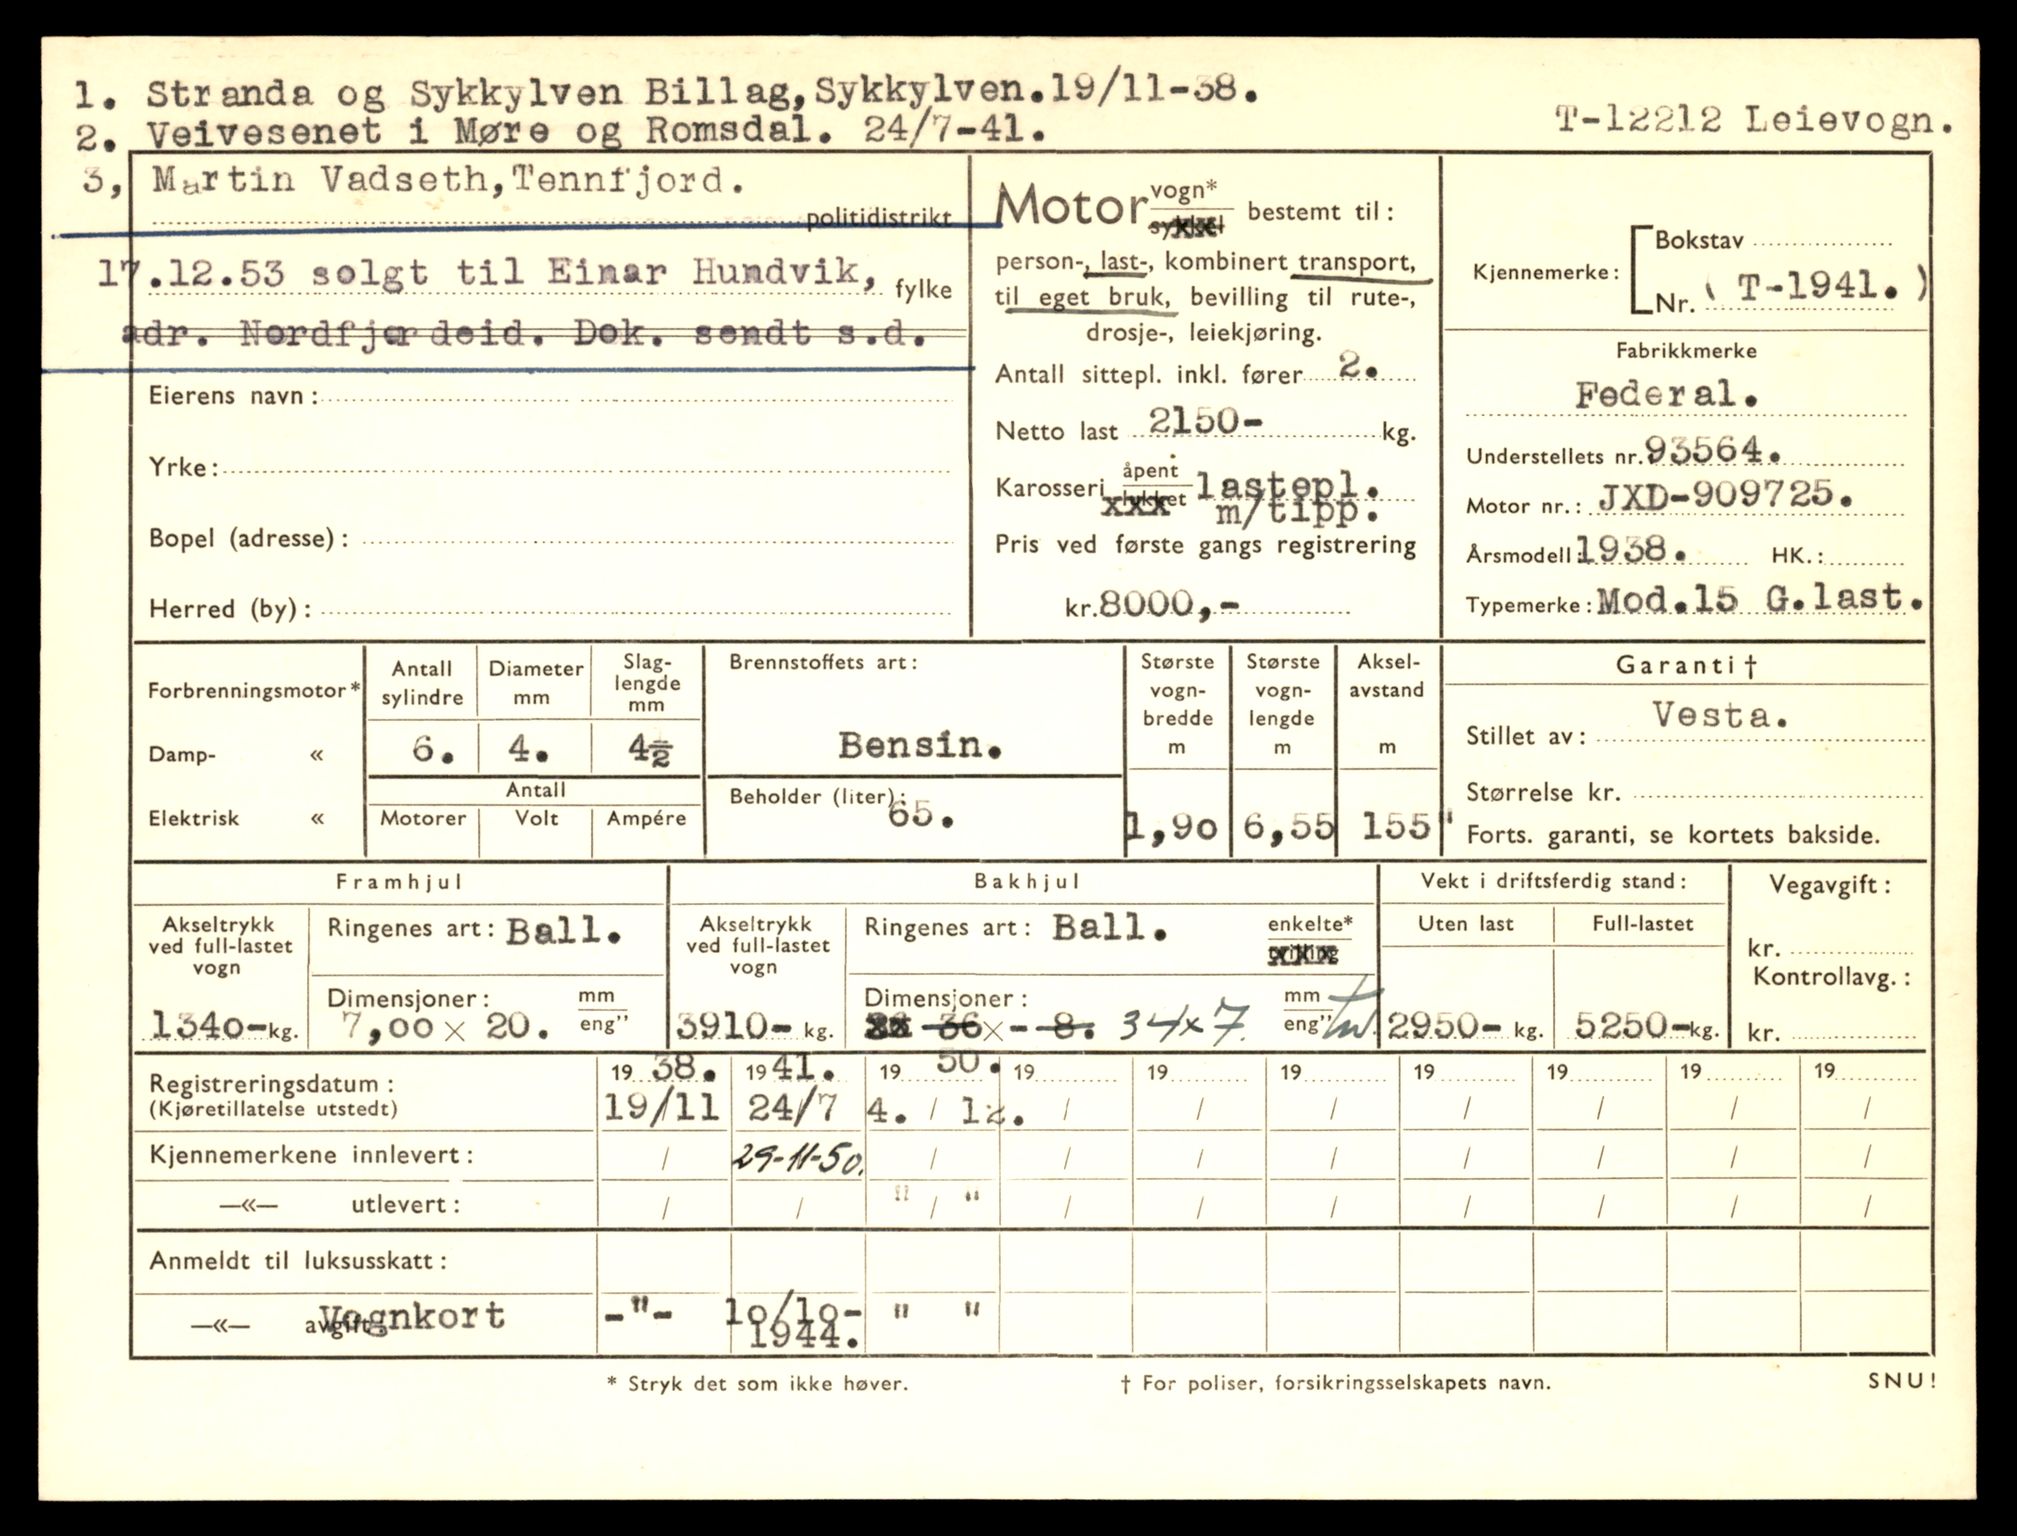 1. Stranda og Sykkylven Billag, Sykkylven. 19/11-38.
2. Veivesenet i Møre og Romsdal. 24/7-41.
T-12212 Leievogn.
3, Martin Vadseth, Tennfjord.
politidistrikt
17.12.53 solgt til Einar Hundvik,
fylke
adr. Nordfjordeid. Dok. sendt s.d.
Eierens navn:
Yrke:
Bopel (adresse):
Herred (by):
Motor vogn* bestemt til:
sykkel
person-, last-, kombinert transport,
til eget bruk, bevilling til rute-,
drosje-, leiekjøring.
Antall sittepl. inkl. fører 2.
Netto last 2150- kg.
Karosseri åpent lastepl.
lukket m/tipp.
Pris ved første gangs registrering
kr. 8000,-
Kjennemerke: Bokstav
Nr. ( T-1941. )
Fabrikkmerke
Federal.
Understellets nr. 93564.
Motor nr.: JXD-909725.
Årsmodell: 1938. HK.:
Typemerke: Mod.15 G.last.
Forbrenningsmotor*
Damp- «
Elektrisk «
Antall sylindre
6.
Diameter mm
4.
Slag-lengde mm
4½
Antall
Motorer Volt Ampére
Brennstoffets art:
Bensin.
Beholder (liter):
65.
Største vogn-bredde m
1,90
Største vogn-lengde m
6,55
Aksel-avstand m
155"
Garanti †
Stillet av: Vesta.
Størrelse kr.
Forts. garanti, se kortets bakside.
Framhjul
Akseltrykk ved full-lastet vogn
1340- kg.
Ringenes art: Ball.
Dimensjoner: mm
7,00 × 20. eng"
Bakhjul
Akseltrykk ved full-lastet vogn
3910- kg.
Ringenes art: Ball. enkelte*
tvilling
Dimensjoner: mm
36 × - 8. 34x7. eng" tv.
Vekt i driftsferdig stand:
Uten last Full-lastet
2950- kg. 5250- kg.
Vegavgift:
kr.
Kontrollavg.:
kr.
Registreringsdatum: 1938. 1941. 1950. 19 19 19 19 19 19 19
(Kjøretillatelse utstedt) 19/11 24/7 4. / 12. / / / / / / /
Kjennemerkene innlevert: / 29-11-50. / / / / / / / /
—«— utlevert: / / " / " / / / / / / /
Anmeldt til luksusskatt:
—«— avgift: Vognkort -"- 10/10-1944. " "
* Stryk det som ikke høver.
† For poliser, forsikringsselskapets navn.
SNU!